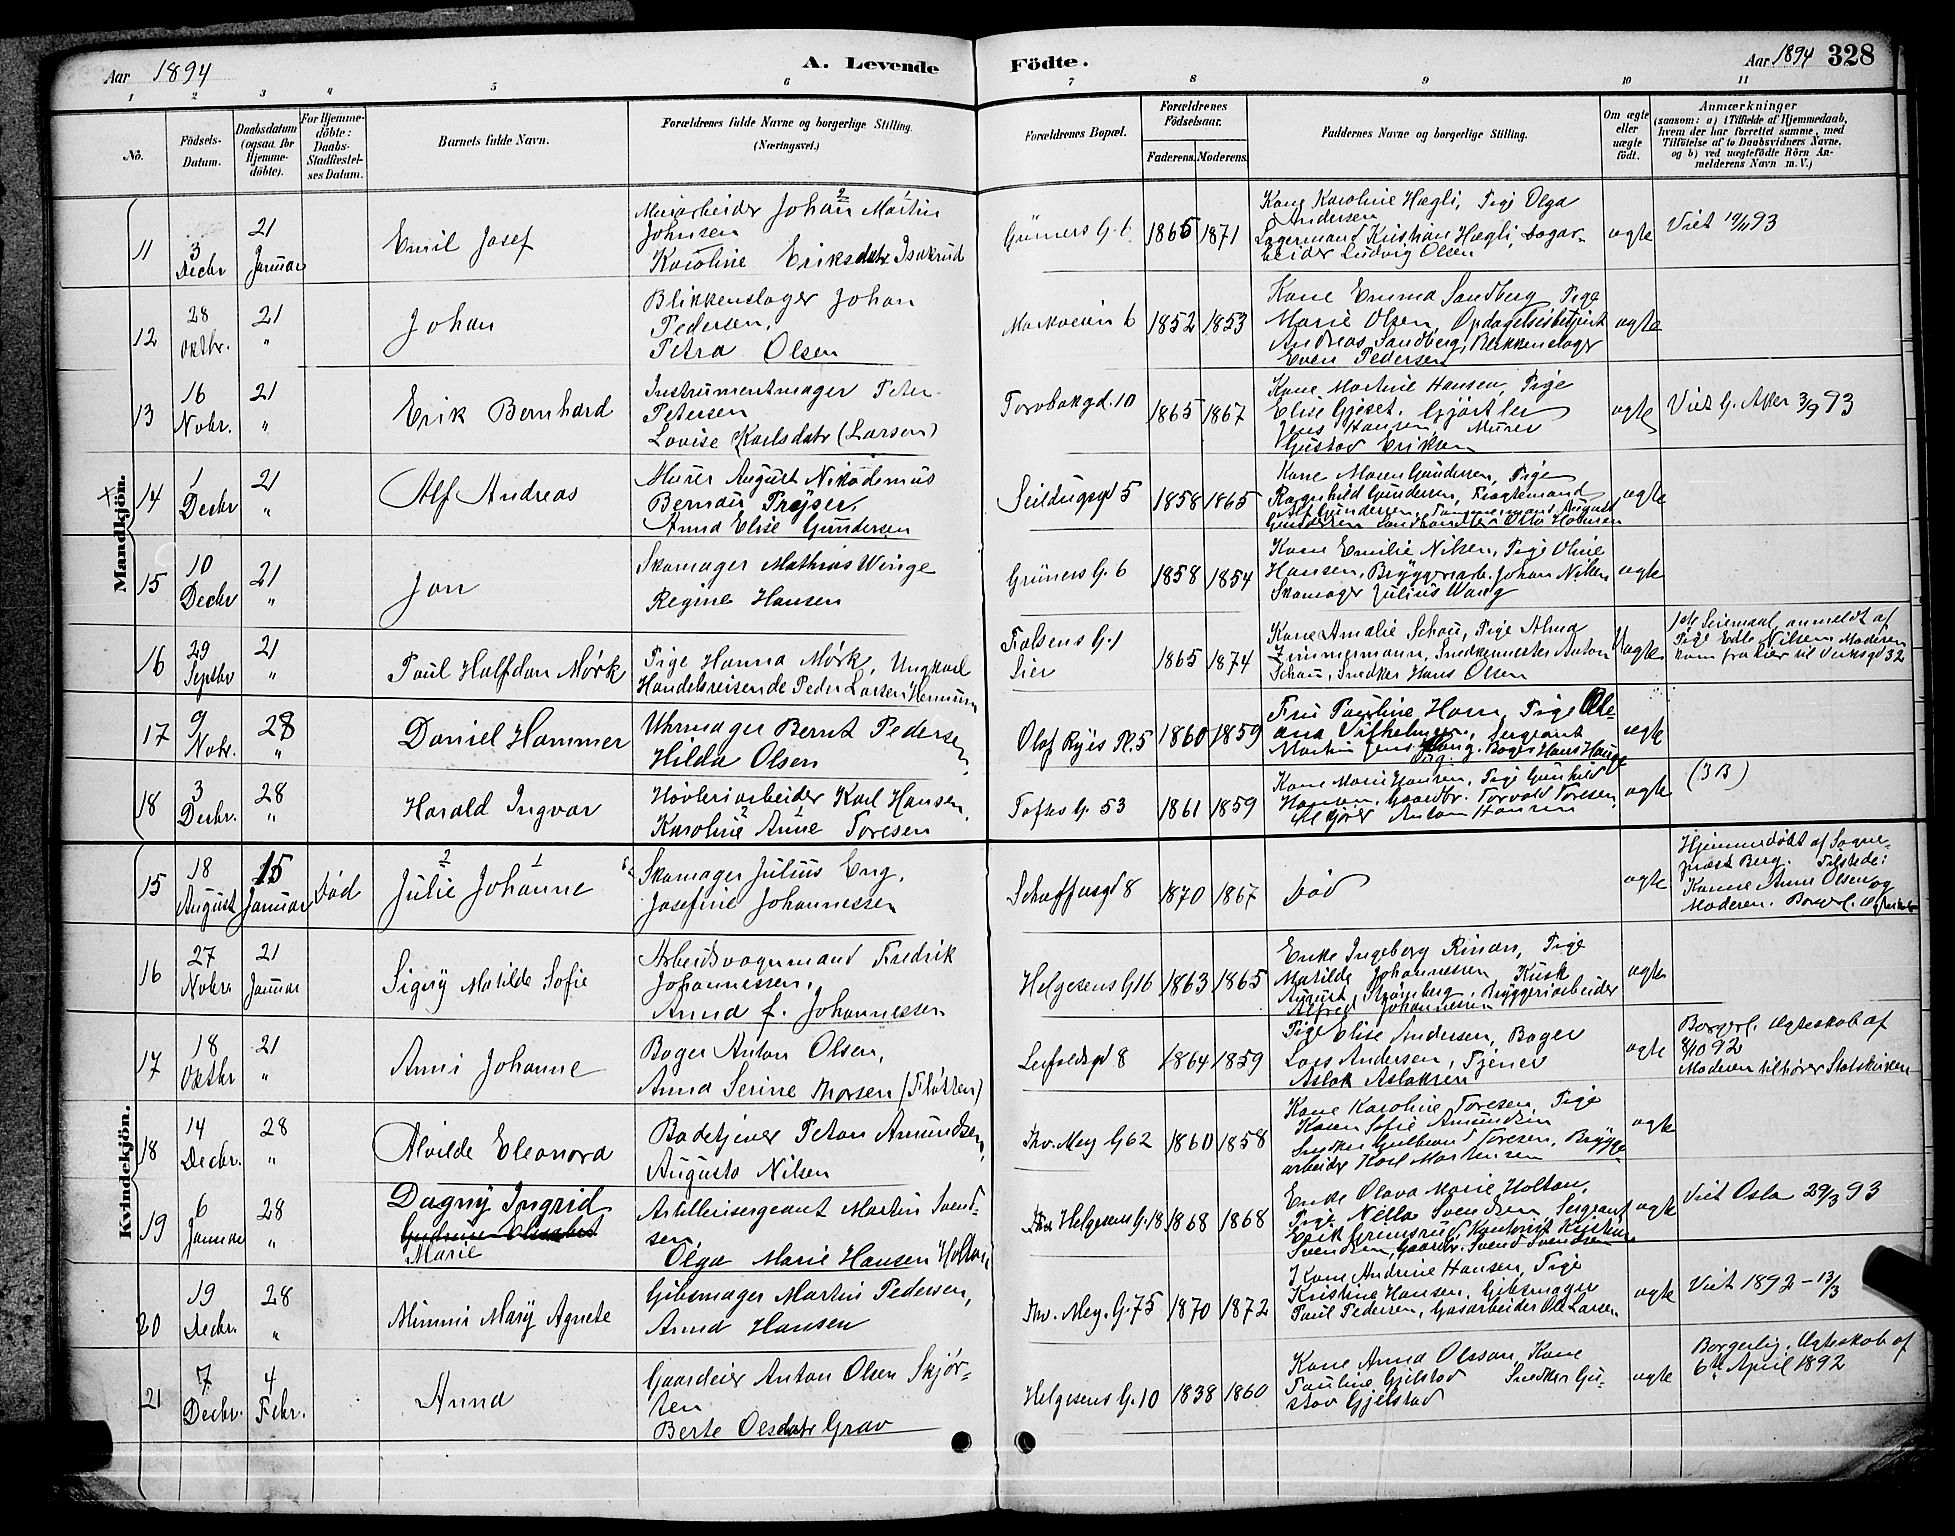 Aar 1894
A. Levende
Födte.
Aar 1894 328
1 2 3 4 5 6 7 8 9 10 11
No.
Födsels-
Datum.
Daabsdatum
(ogsaa for
Hjemme-
döbte).
For Hjemme-
döbte:
Daabs-
Stadfæstel-
ses Datum.
Barnets fulde Navn.
Forældrenes fulde Navne og borgerlige Stilling.
(Næringsvei.)
Forældrenes Bopæl.
Forældrenes
Födselsaar.
Faderens. Moderens.
Faddernes Navne og borgerlige Stilling.
Om ægte
eller
uægte
født.
Anmærkninger
(saasom: a) i Tilfælde af Hjemmedaab,
hvem der har forrettet samme, med
Tilföielse af to Daabsvidners Navne,
og b) ved uægtefödte Börn An-
melderens Navn m. V.)
Mandkjön.
11
3
Decbr
21
Januar
Emil Josef
Murarbeider Johan Martin
Johnsen
Karoline Eriksdatr Isakrud
Grüners G. 6
1865 1871
Kone Karoline Hægli, Pige Olga
Andersen
Lagermand Kristian Hægli,
Ludvig Olsen
ægte
Viet 93
12
28
Oktbr.
21
"
Johan
Blikkenslager Johan
Pedersen,
Petra Olsen
Markveien 6
1852 1853
Kone Emma Sandberg, Pige
Marie Olsen, Opdagelsesbetjent
Andreas Sandberg, Blikkenslager
Even Pedersen
ægte
13
16
Novbr.
21
"
Erik Bernhard
Instrumentmager Peter
Petersen
Lovise Karlsdatr (Larsen)
Torvbakgd. 10
1865 1867
Kone Martine Hansen, Pige
Elise Gjeset, Gjørtler
Jens Hansen, Murer
Gustav Eriksen
ægte
Viet G. Aker 3/9 93
14
1
Decbr
21
"
Alf Andreas
Murer August Nikodemus
Bernau Prøyser,
Anna Elise Gundersen
Seildugsgd 5
1858 1865
Kone Maren Gundersen, Pige
Ragnhild Gundersen, Fragtemand
Alf Gundersen, Tømmermand August
Gundersen, Otto Halvorsen
ægte
15
10
Decbr
21
"
Jon
Skomager Mathias Winge
Regine Hansen
Grüners G. 6
1858 1854
Kone Emilie Nilsen, Pige Oline
Hansen, Bryggeriarb. Johan Nilsen
Skomager Julius Wang
ægte
16
29
Septbr
21
"
Paul Halfdan Mörk
Pige Hanna Mörk, Ungkarl
Handelsreisende Peder Larsen
Falsens G. 1
Lier
1865 1874
Kone Amalie Schou, Pige Alma
Zimmermann, Snedkermester Anton
Schou, Snedker Hans Olsen
Uægte
1ste Leiermaal, anmeldt af
Pige Edle Nilsen, Moderen
kom fra Lier til Verksgd 32
17
9
Novbr.
28
"
Daniel Hammer
Uhrmager Bernt Pedersen,
Hilda Olsen
Olaf Ryes Pl. 5
1860 1859
Fru Pauline Horn, Pige Ole-
ana Vilhelmsen, Sergeant
Martin Jens Haug, Bager Hans Hauge
ægte
18
3
Decbr.
28
"
Harald Ingvar
Høvleriarbeider Karl Hansen,
Karoline Anne Toresen
Toftes G. 53
1861 1859
Kone Marie Hansen, Pige Gunhild
Hansen, Gaardbr. Torvald Toresen,
Anton Hansen
ægte
(3 B)
Kvindekjön.
15
18
August
15
Januar
Død
Julie Johanne
Skomager Julius Eng,
Josefine Johannessen
Schaffersgd 8
1870 1867
Død
ægte
Hjemmedøbt af Sogne-
præst Berg. Tilstede:
Konene Anne Olsen og
Moderen. Borgerl. Ægteskab
16
27
Novbr
21
Januar
Signy Matilde Sofie
Arbeidsvognmand Fredrik
Johannessen,
Anna f. Johannessen
Helgesens G 16
1863 1865
Enke Ingeborg Rinan, Pige
Matilde Johannessen, Kusk
August Strömberg, Bryggeriarbeider
Alfred Johannessen
ægte
17
18
Oktbr
21
"
Anni Johanne
Bager Anton Olsen,
Anna Serine Thorsen (Fløtten)
8
1864 1859
Pige Elise Andersen, Bager
Lars Andersen, Tjener
Aslak Aslaksen
ægte
Borgerl. Ægteskab af
8/10 92
Moderen tilhører Statskirken
18
14
Decbr.
28
"
Alvilde Eleonora
Badetjener Petter Amundsen,
Augusta Nilsen
Thv. Mey. G 62
1860 1858
Kone Karoline Toresen, Pige
Karen Sofie Amundsen
Snedker Gulbrand Toresen, Brygge-
arbeider Karl Martinsen
ægte
19
6
Januar
28
"
Dagny Ingrid
Marie
Artillerisergeant Martin Svend-
sen,
Olga Marie Hansen Holtan
Helgesens G. 18
1868 1868
Enke Olava Marie Holtan,
Pige Nella Svendsen, Sergeant
Erik Grimsrud, Kontorist Kristian
Svendsen, Gaardbr. Svend Svendsen
ægte
Viet Oslo 29/3 93
20
19
Decbr.
28
"
Mimmi Mary Agnete
Gibsmager Martin Pedersen,
Anna Hansen
Thv. Mey. G. 75
1870 1872
Kone Andrine Hansen, Pige
Kristine Hansen, Gibsmager
Paul Pedersen, Gasarbeider Ole Larsen
ægte
Viet 1892 - 13/3
21
7
Decbr.
4
Febr.
Anna
Gaardeier Anton Olsen Skjør-
ten
Berte Olesdatr Grav
Helgesens G. 10
1838 1860
Kone Anna Olsson, Kone
Pauline Gjelstad Snedker Gu-
stav Gjelstad
ægte
Borgerlig Ægteskab af
6te April 1892